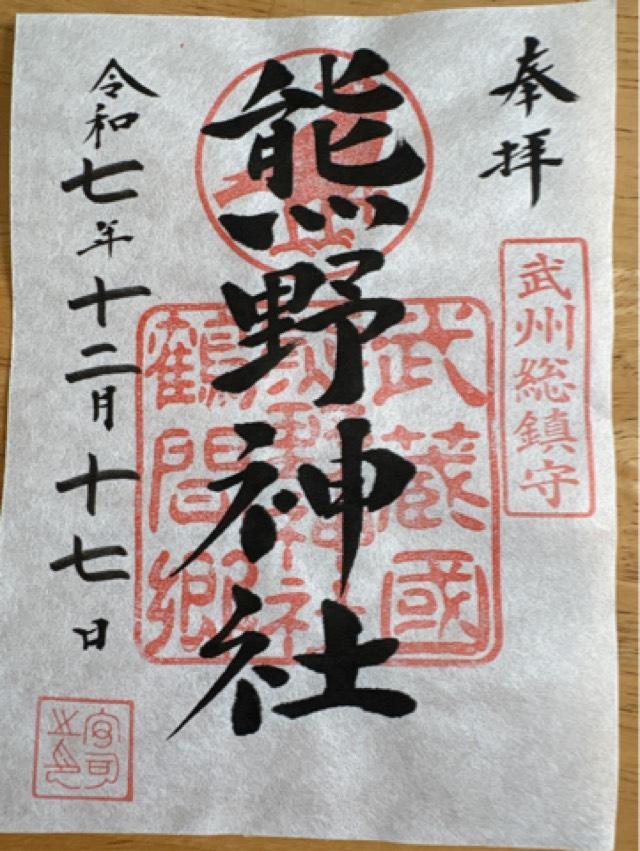 奉拝
武州総鎮守
熊野神社
武蔵國
熊野神社
鶴間郷
令和七年十二月十七日